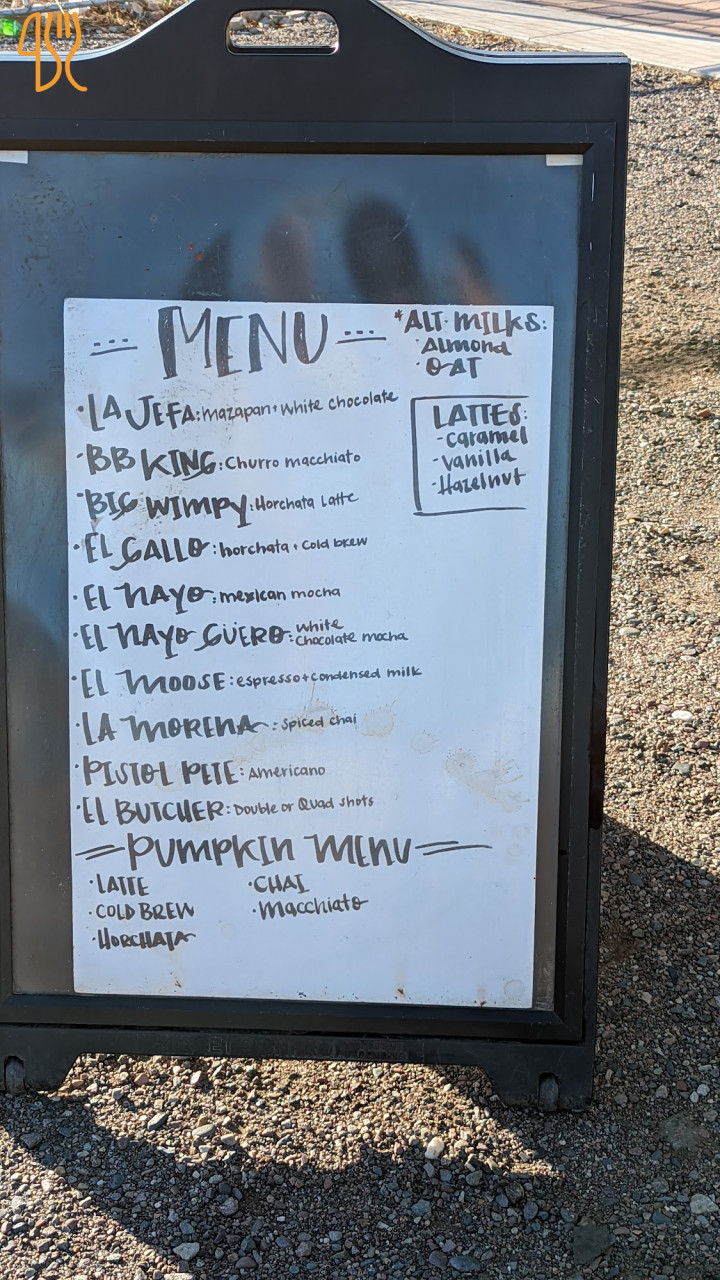 MENU
*ALT. MILKS:
· Almond
· OAT
· LA JEFA: mazapan + White chocolate
· BB KING: Churro macchiato
· BIG WIMPY: Horchata Latte
· EL GALLO: horchata + cold brew
· EL NAYO: mexican mocha
· EL NAYO GÜERO: white chocolate mocha
· EL MOOSE: espresso + condensed milk
· LA MORENA: spiced chai
· PISTOL PETE: Americano
· EL BUTCHER: Double or Quad shots
LATTES:
- caramel
- vanilla
- Hazelnut
PUMPKIN MENU
· LATTE
· COLD BREW
· HORCHATA
· CHAI
· Macchiato